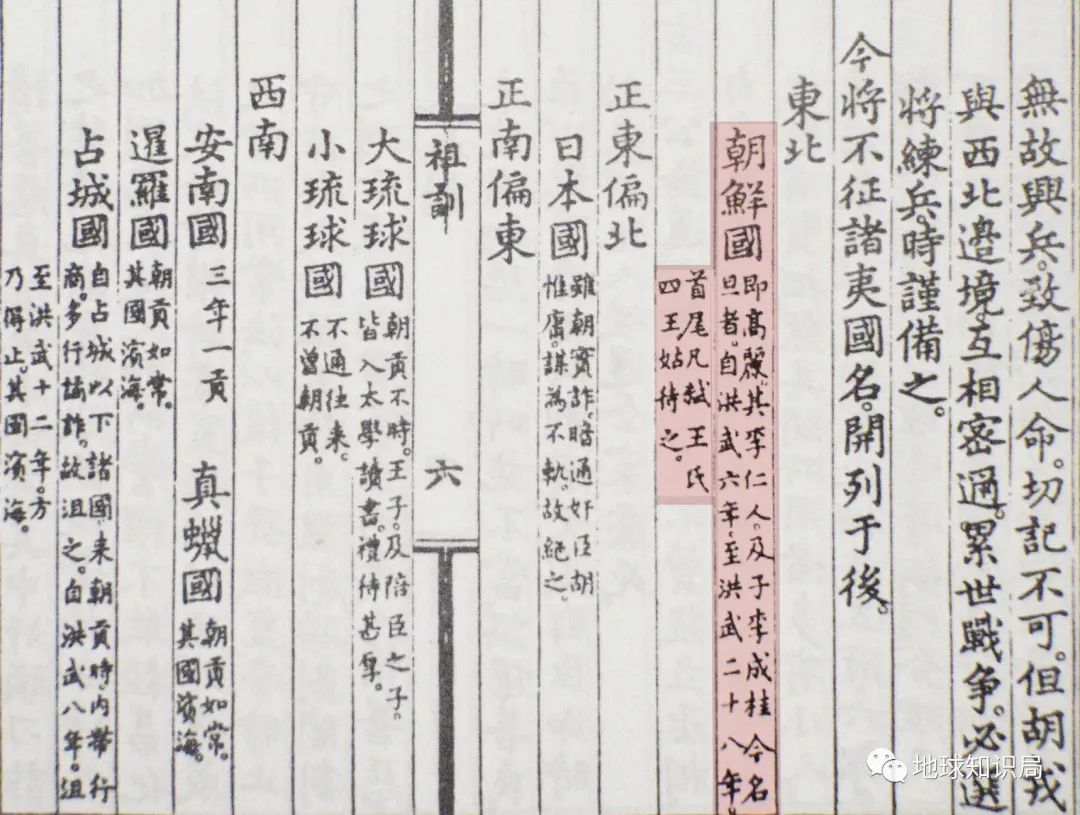 無故興兵。致傷人命。切記不可。但胡戎
與西北邊境。互相密邇。累世戰爭。必選
將練兵。時謹備之。
今將不征諸夷國名。開列于後。
東北
朝鮮國
即高麗。其李仁人。及子李成桂 今名
旦者。自洪武六年。至洪武二十八年。
首尾凡弒王氏
四王。姑待之。
正東偏北
日本國
雖朝實詐。暗通奸臣胡
惟庸。謀為不軌。故絕之。
正南偏東
祖訓
六
大琉球國
朝貢不時。王子。及陪臣之子。
皆入太學讀書。禮待甚厚。
小琉球國
不通往來。
不曾朝貢。
西南
安南國 三年一貢
真蠟國
朝貢如常。
其國濱海。
暹羅國
朝貢如常。
其國濱海。
占城國
自占城以下諸國。來朝貢時。內帶行
商。多行譎詐。故沮之。自洪武八年。沮
至洪武十二年。方
乃得止。其國濱海。
地球知识局